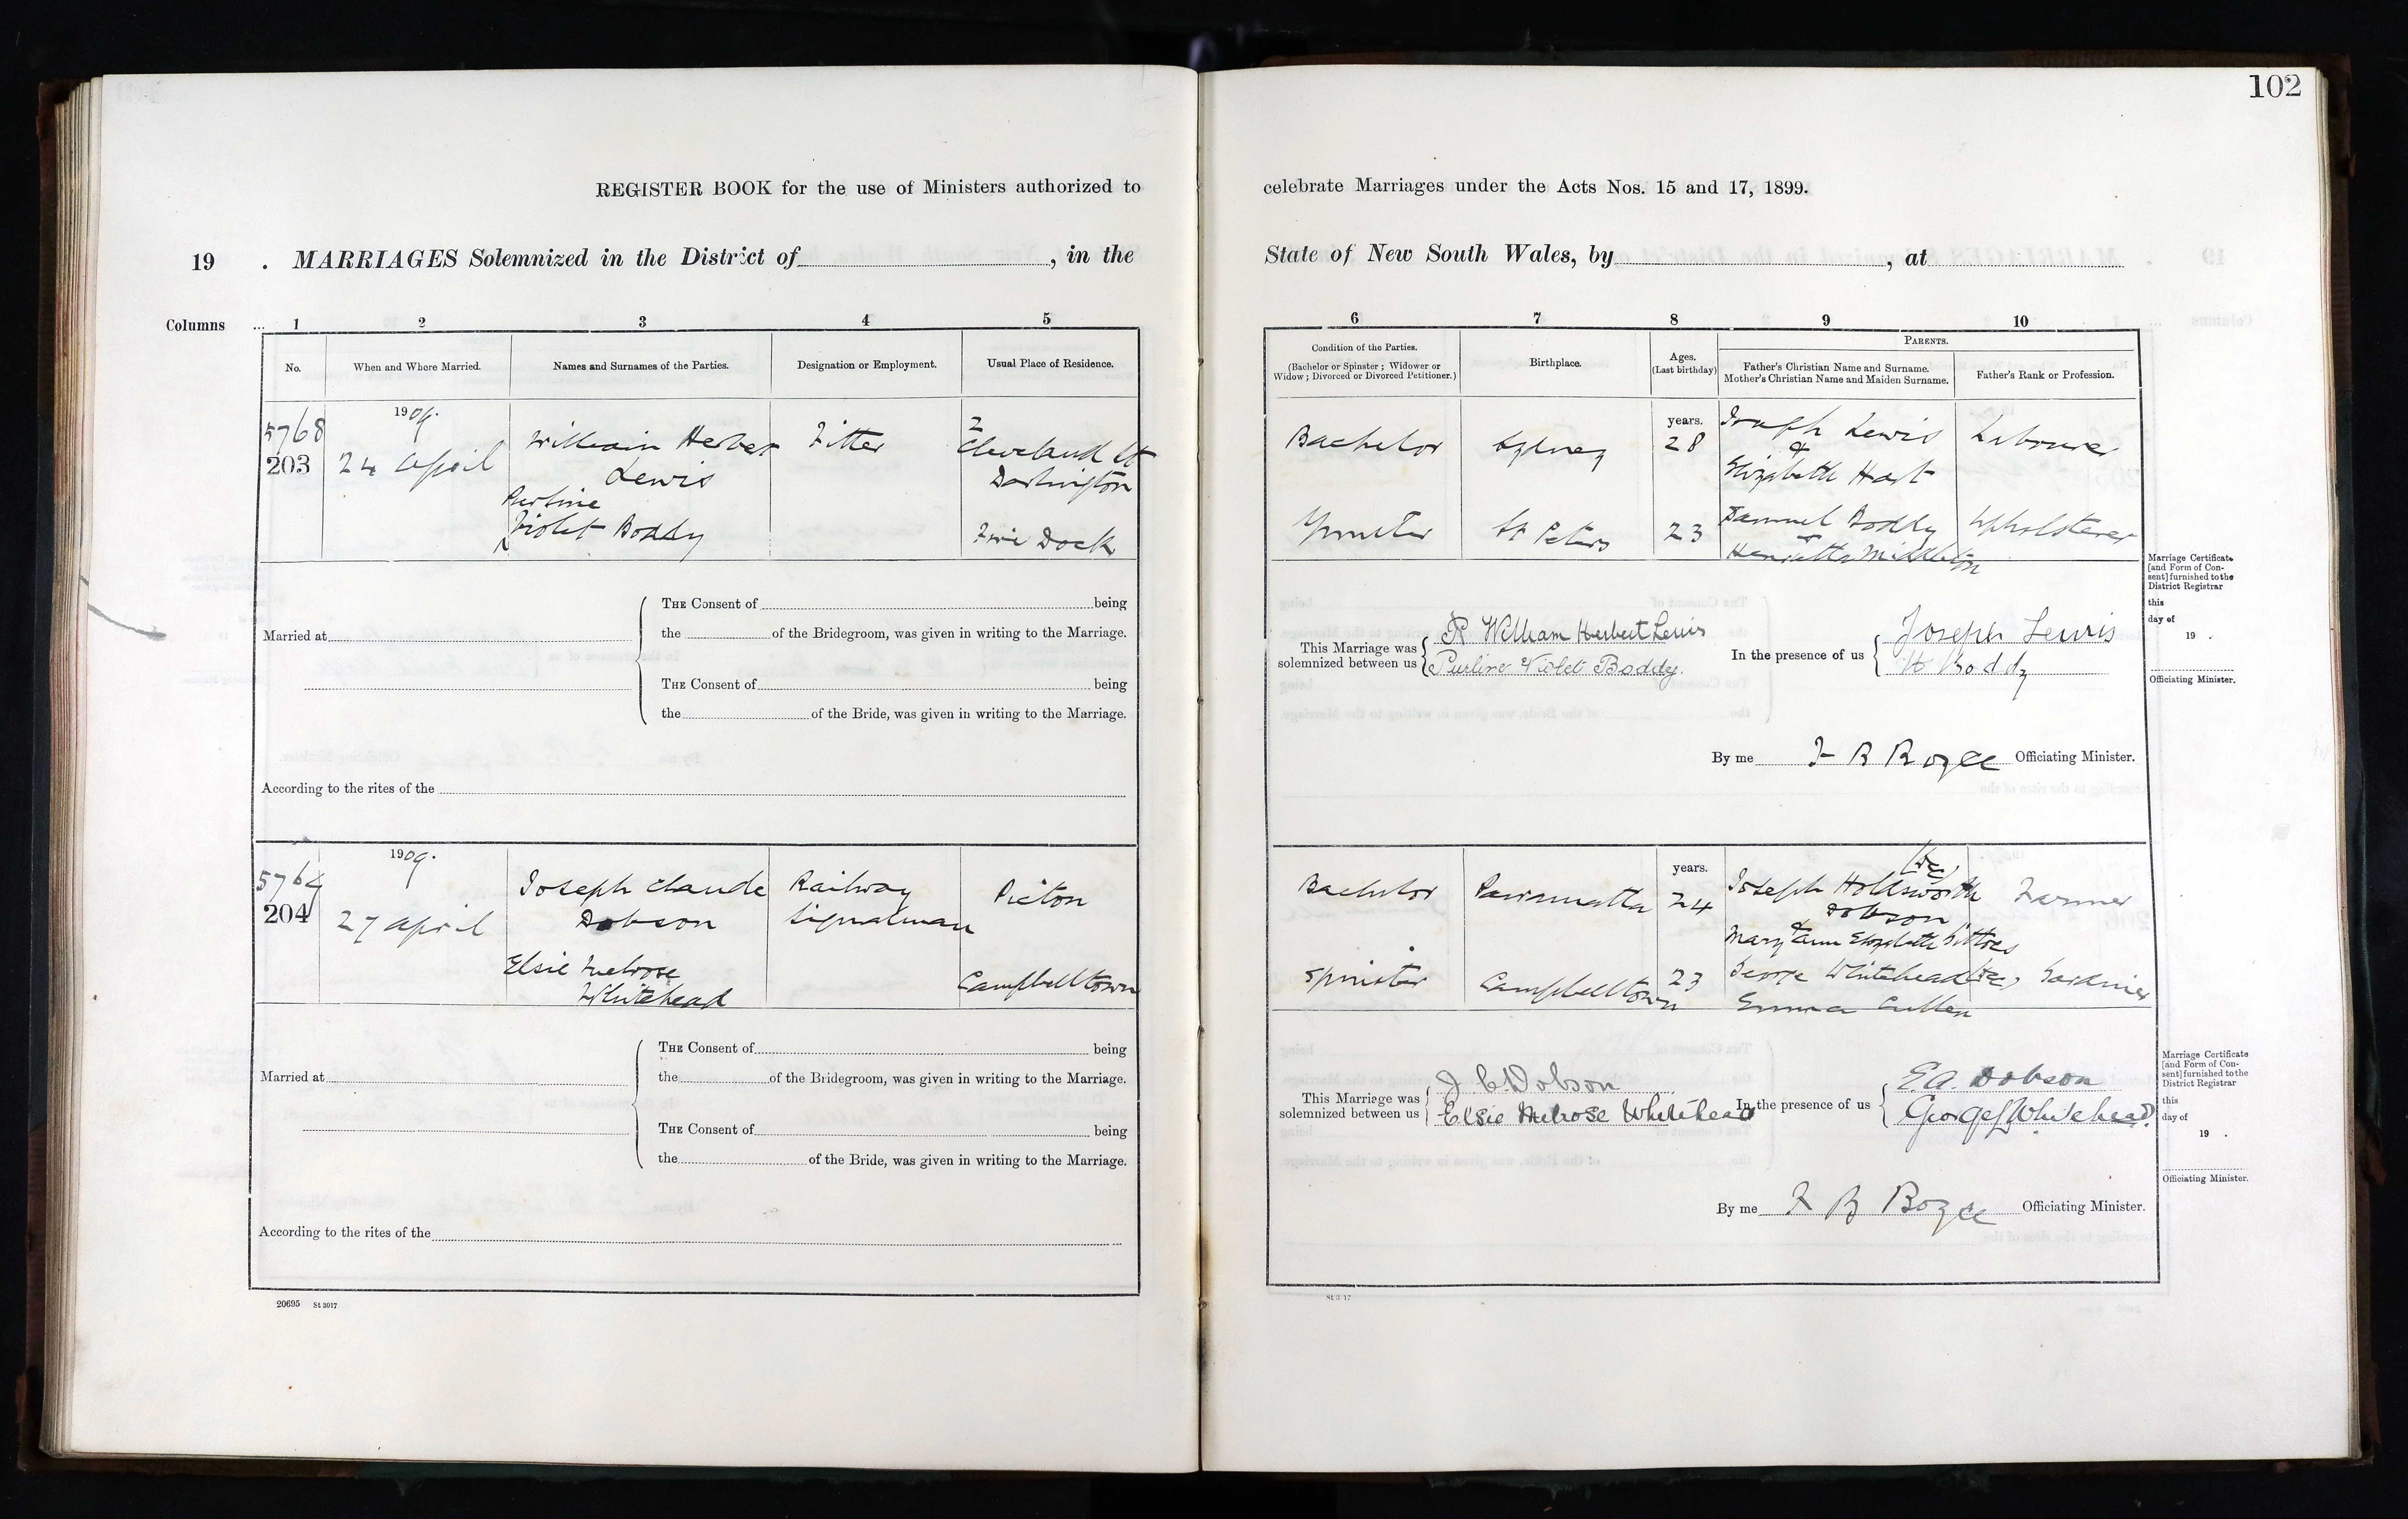 102
REGISTER BOOK for the use of Ministers authorized to celebrate Marriages under the Acts Nos. 15 and 17, 1899.
19 . MARRIAGES Solemnized in the District of , in the State of New South Wales, by , at
Columns ... 1 2 3 4 5 6 7 8 9 10
No.
When and Where Married.
Names and Surnames of the Parties.
Designation or Employment.
Usual Place of Residence.
Condition of the Parties.
(Bachelor or Spinster ; Widower or
Widow ; Divorced or Divorced Petitioner.)
Birthplace.
Ages.
(Last birthday)
PARENTS.
Father's Christian Name and Surname.
Mother's Christian Name and Maiden Surname.
Father's Rank or Profession.
5768
203
1909.
24 April
William Herbert
Lewis
Purline
Violet Boddy
Fitter
2
Cleveland St
Darlington
Five Dock
Bachelor
Spinster
Sydney
St Peters
years.
28
23
Joseph Lewis
&
Elizabeth Hart
Samuel Boddy
Henrietta Middleton
Labourer
Upholsterer
Married at
THE Consent of being
the of the Bridegroom, was given in writing to the Marriage.
THE Consent of being
the of the Bride, was given in writing to the Marriage.
According to the rites of the
This Marriage was
solemnized between us
R William Herbert Lewis
Purline Violet Boddy.
In the presence of us
Joseph Lewis
H Boddy
By me F B Boyce Officiating Minister.
Marriage Certificate
[and Form of Con-
sent] furnished to the
District Registrar
this
day of
19 .
Officiating Minister.
5769
204
1909.
27 April
Joseph Claude
Dobson
Elsie Melrose
Whitehead
Railway
Signalman
Picton
Campbelltown
Bachelor
Spinster
Parramatta
Campbelltown
years.
24
23
(dec)
Joseph Holdsworth
Dobson
&
Mary Ann Elizabeth
George Whitehead (dec)
Emma Cullen
Farmer
Gardiner
Married at
THE Consent of being
the of the Bridegroom, was given in writing to the Marriage.
THE Consent of being
the of the Bride, was given in writing to the Marriage.
According to the rites of the
This Marriage was
solemnized between us
J C Dobson
Elsie Melrose Whitehead
In the presence of us
E.A. Dobson
George Whitehead.
By me F B Boyce Officiating Minister.
Marriage Certificate
[and Form of Con-
sent] furnished to the
District Registrar
this
day of
19 .
Officiating Minister.
20695 St 3017